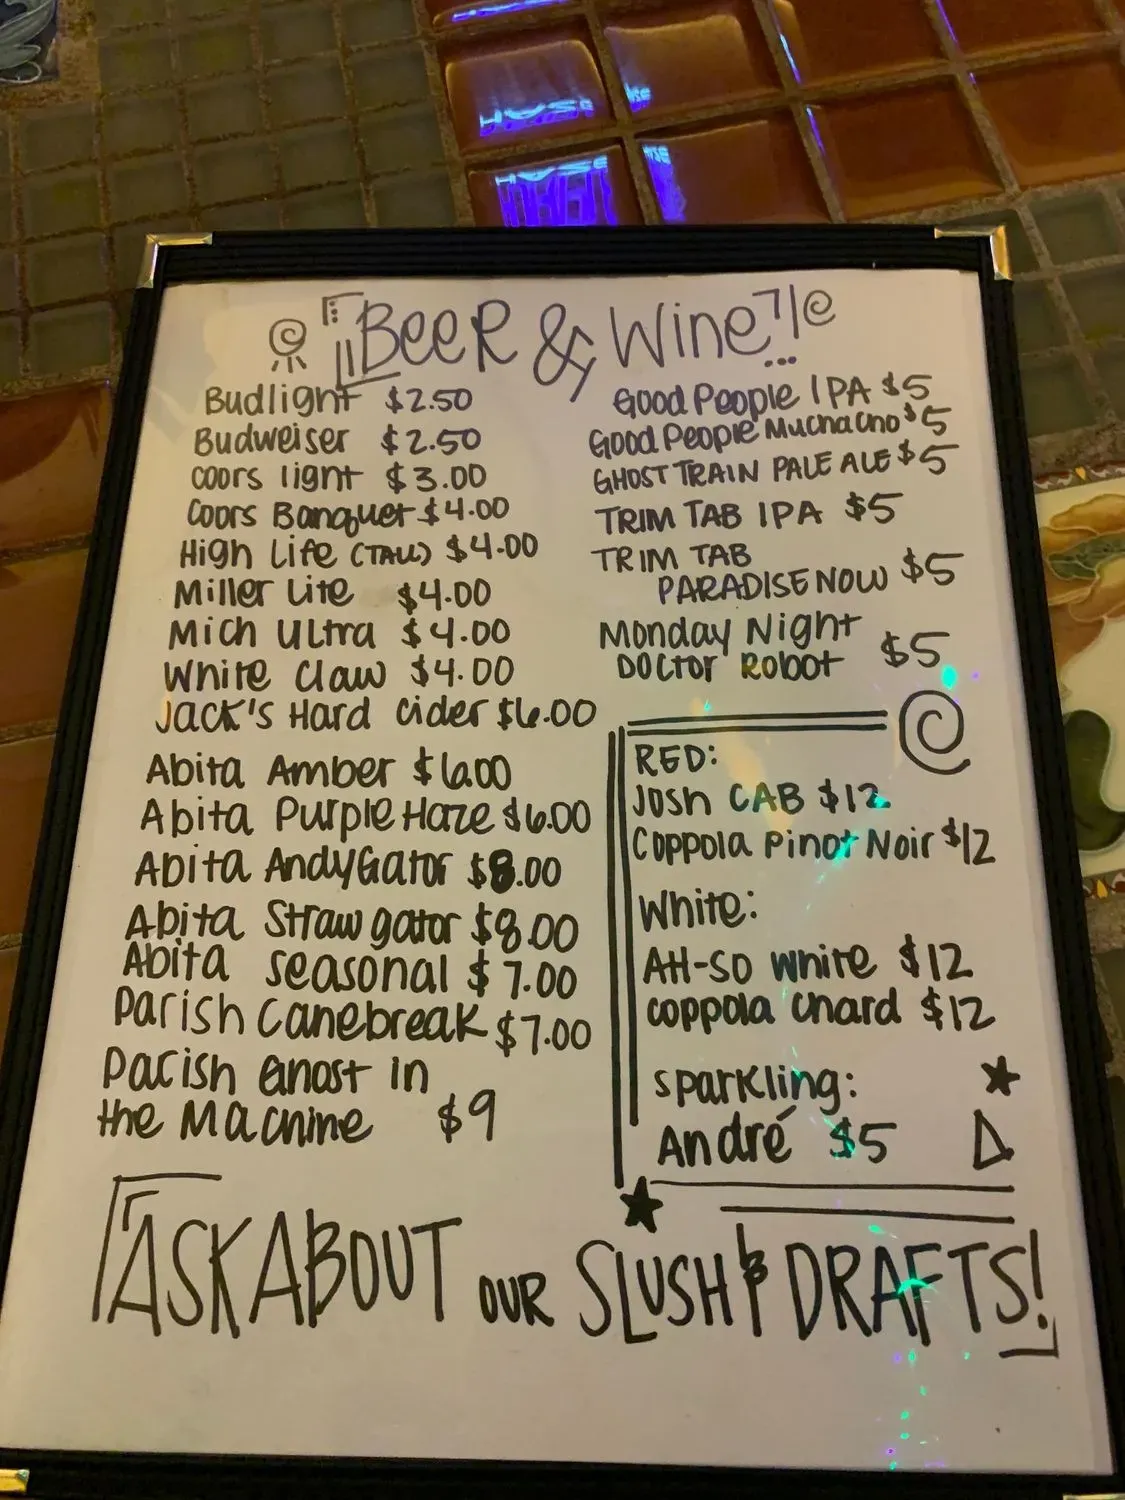 Beer & Wine
Budlight $2.50
Budweiser $2.50
Coors light $3.00
Coors Banquet $4.00
High Life (TALL) $4.00
Miller Lite $4.00
Mich Ultra $4.00
White Claw $4.00
Jack's Hard Cider $6.00
Abita Amber $6.00
Abita Purple Haze $6.00
Abita AndyGator $8.00
Abita Strawgator $8.00
Abita Seasonal $7.00
Parish Canebreak $7.00
Parish Ghost in
the Machine $9
Good People IPA $5
Good People Muchacho $5
GHOST TRAIN PALE ALE $5
TRIM TAB IPA $5
TRIM TAB
PARADISE NOW $5
Monday Night
Doctor Robot $5
RED:
Josh CAB $12
Coppola Pinot Noir $12
White:
AH-SO White $12
Coppola Chard $12
Sparkling:
André $5
ASK ABOUT OUR SLUSH & DRAFTS!